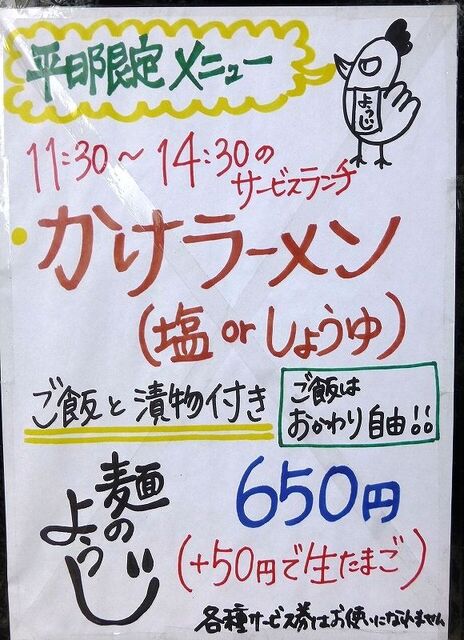 平日限定メニュー
ようじ
11:30～14:30の
サービスランチ
かけラーメン
(塩orしょうゆ)
ご飯と漬物付き
ご飯は
おかわり自由!!
麺の
ようじ
650円
(+50円で生たまご)
各種サービス券はお使いになれません